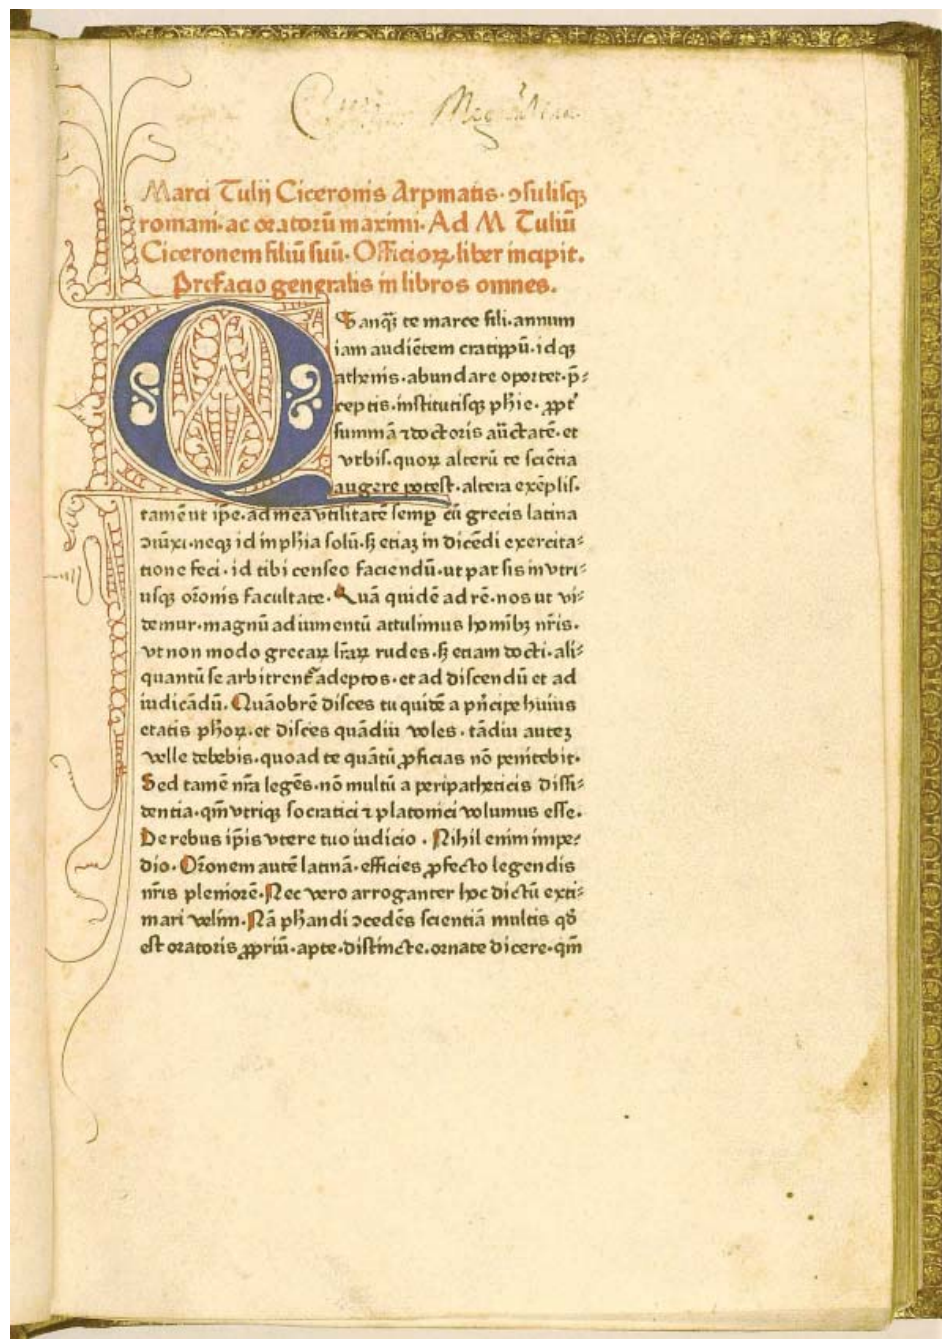 Marci Tulij Ciceronis Arpinatis· ɔsulisqꝫ
romani·ac oratorū maximi· Ad M Tuliū
Ciceronem filiū suū· Officioꝝ liber incipit.
Prefacio generalis in libros omnes.
Qanqȝ̄ te marce fili·annum
iam audiētem cratippū·idqꝫ
athenis·abundare oportet·p̄⸗
ceptis·institutisqꝫ phīe·ꝓpt̄
summā ⁊ doctoris auc̄tatē·et
vrbis·quoꝝ alterū te sciētia
augere potest·altera exēplis.
tamē ut ip̄e·ad mea vtilitatē semꝑ cū grecis latina
ɔiūxi·neqꝫ id in phīa solū·ꞩ etiaꝫ in dicēdi exercita⸗
tione feci·id tibi censeo faciendū·ut par sis in vtri⸗
usqꝫ or̄onis facultate· Quā quidē ad rē·nos ut vi⸗
demur·magnū adiumentū attulimus homībꝫ nr̄is·
vt non modo grecaꝝ lr̄aꝝ rudes·ꞩ etiam docti·ali⸗
quantū se arbitrent᷑ adeptos·et ad discendū et ad
iudicādū· Quāobrē disces tu quidē a pn̄cipe huius
etatis ph̄oꝝ·et disces quādiu voles·tādiu auteꝫ
velle debebis·quoad te quātū ꝓficias nō penitebit·
Sed tamē nr̄a legēs·nō multū a peripatheticis dissi⸗
dentia·qm̄ vtriqꝫ socratici ⁊ platonici volumus esse.
De rebus ip̄is vtere tuo iudicio· Nihil enim impe⸗
dio· Or̄onem autē latinā·efficies ꝓfecto legendis
nr̄is pleniorē· Nec vero arroganter hoc dictū exti⸗
mari velim· Nā ph̄andi ɔcedēs scientiā multis qd̄
est oratoris ꝓpriū·apte·distincte·ornate dicere·qm̄